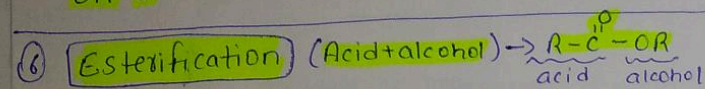 ⑥ Esterification (Acid+alcohol) → R-C-OR
O
acid alcohol